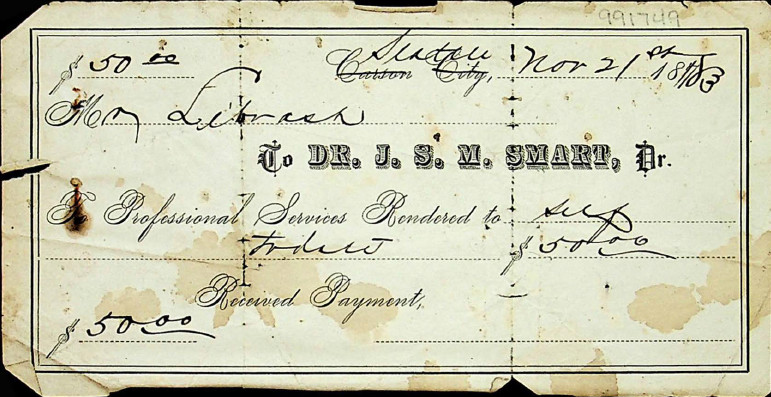 991749
$50.00 Seattle Carson City, Nov 21st 1883
Mr Librash
To DR. J. S. M. SMART, Dr.
To Professional Services Rendered to self
to date $50.00
Received Payment,
$50.00